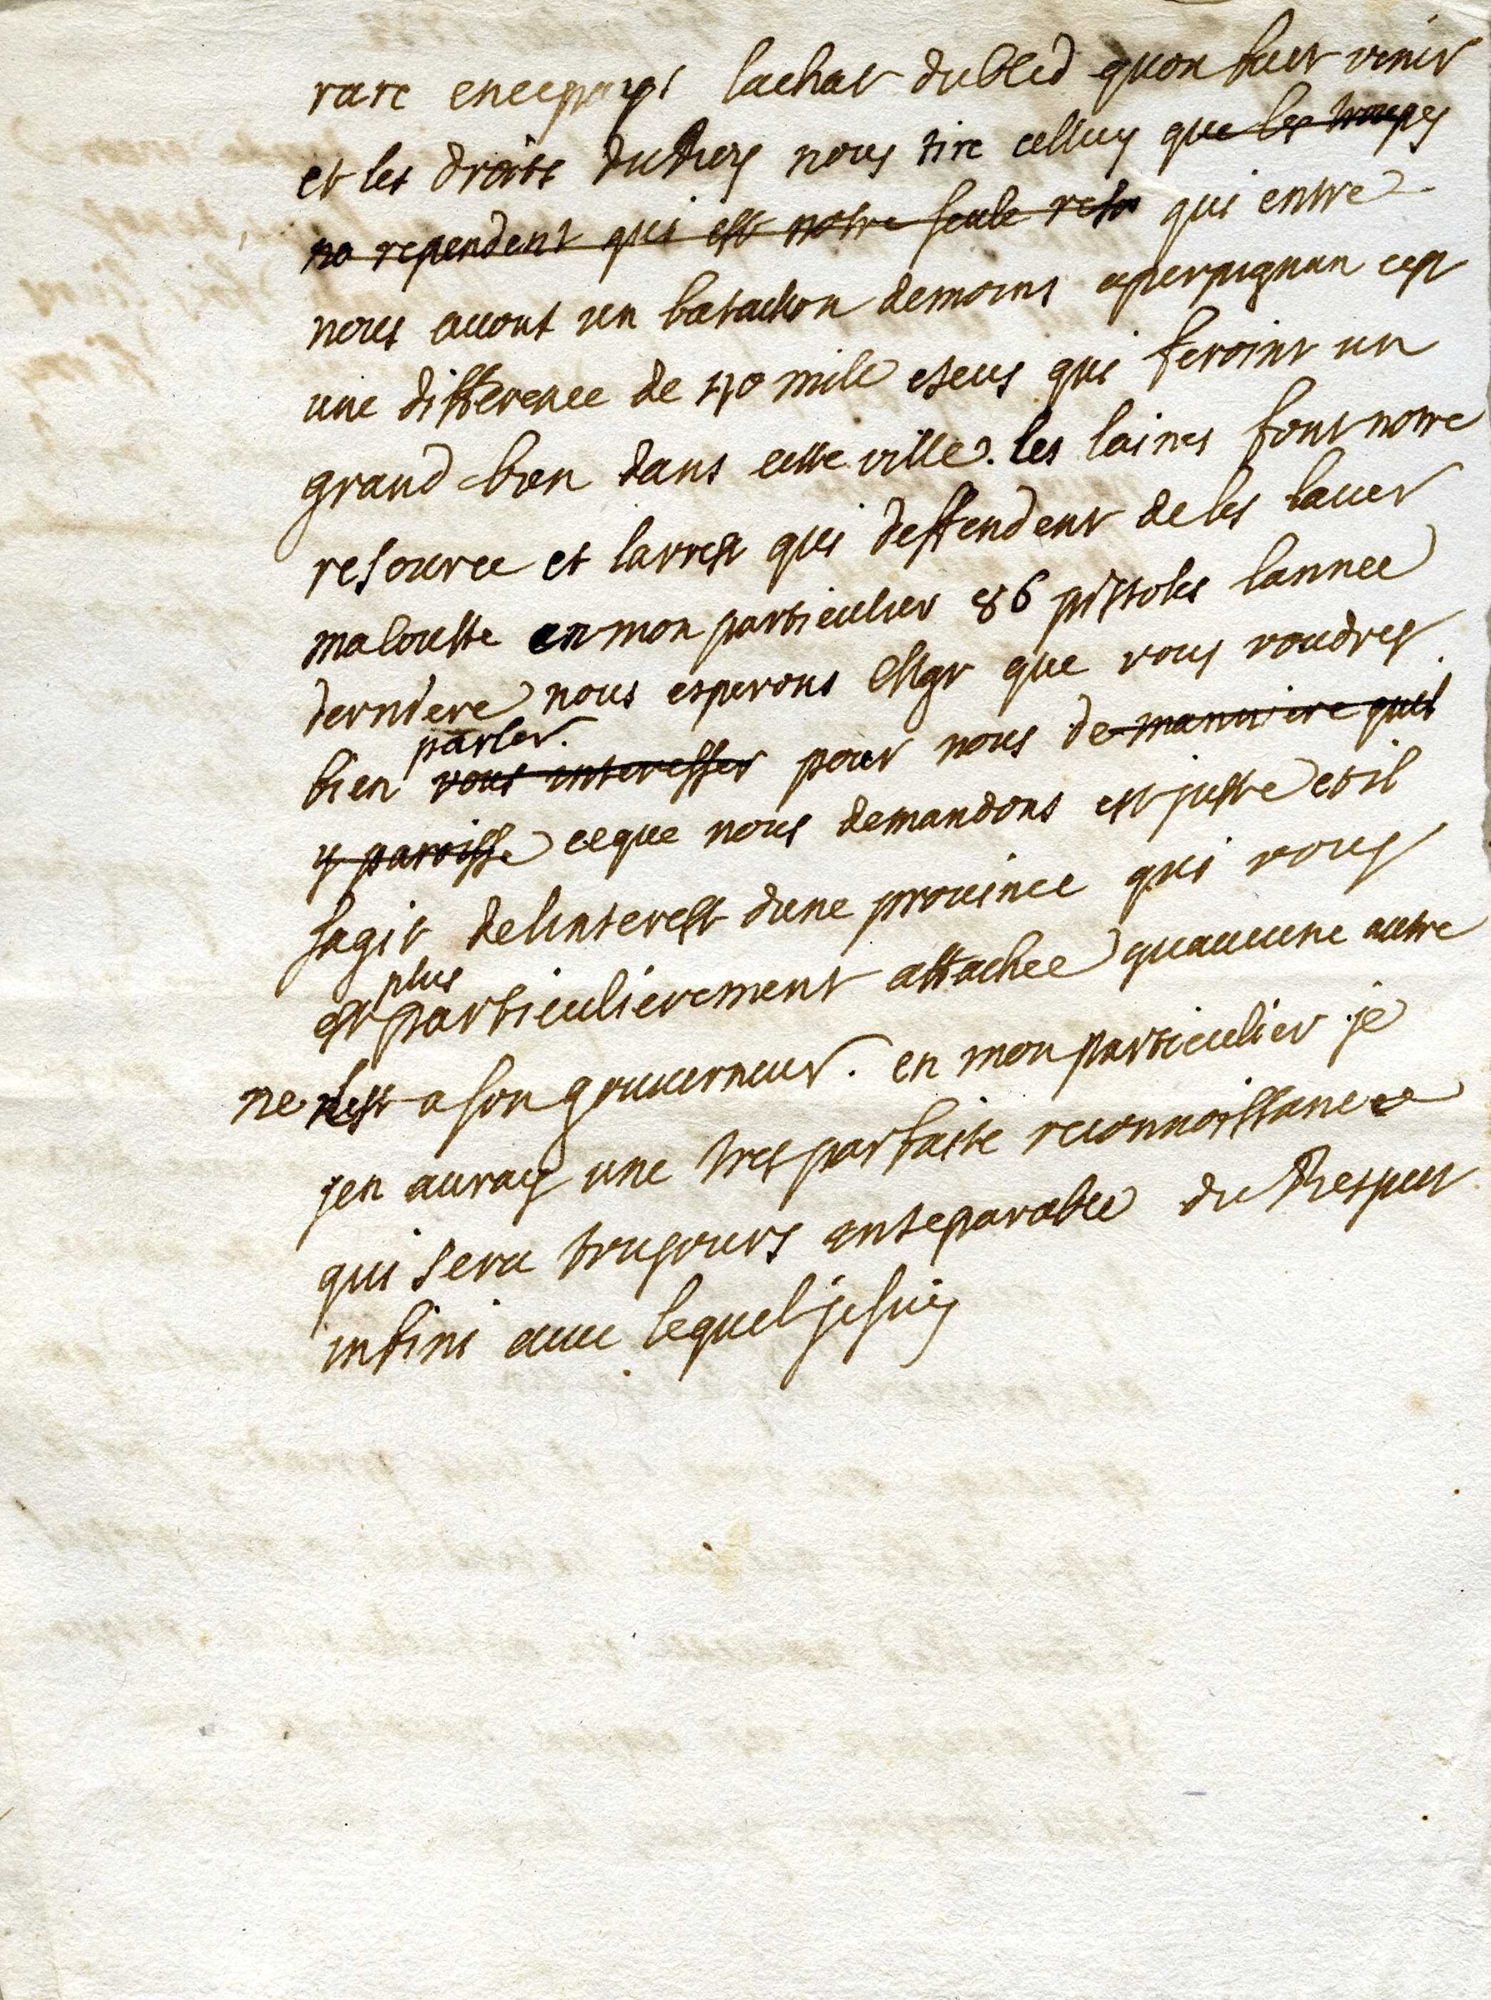 rare encepays lachat dubled quon fait venir
et les droits du Roy nous tire celluy que les troupes
no rependent qui est notre seule reso qui entre
nous avons un bataillon demoins aperpignan cest
une difference de 40 mille eseus qui feroint un
grand bien dans cette ville. les laines sont notre
resource et larrest qui deffendent de les laver
ma loutte en mon particulier 86 pistoles lannee
derniere nous esperons Mgr que vous voudres
parler.
bien vous interesser pour nous de maniere quil
y paroisse ceque nous demandons est juste et il
sagit delinterest dune province qui vous
plus
est particulierement attachee quaucune autre
ne lest a son gouverneur. en mon particulier je
jen auray une tres parfaite reconnoissance
qui sera toujours inseparable du Respect
infini avec lequel je suis